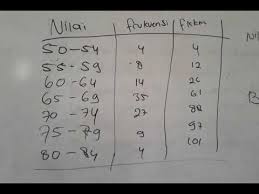 Nilai frekuensi fkkm
50-54 4 4
55-59 8 12
60-64 14 26
65-69 35 61
70-74 27 88
75-79 9 97
80-84 4 101
NI
B